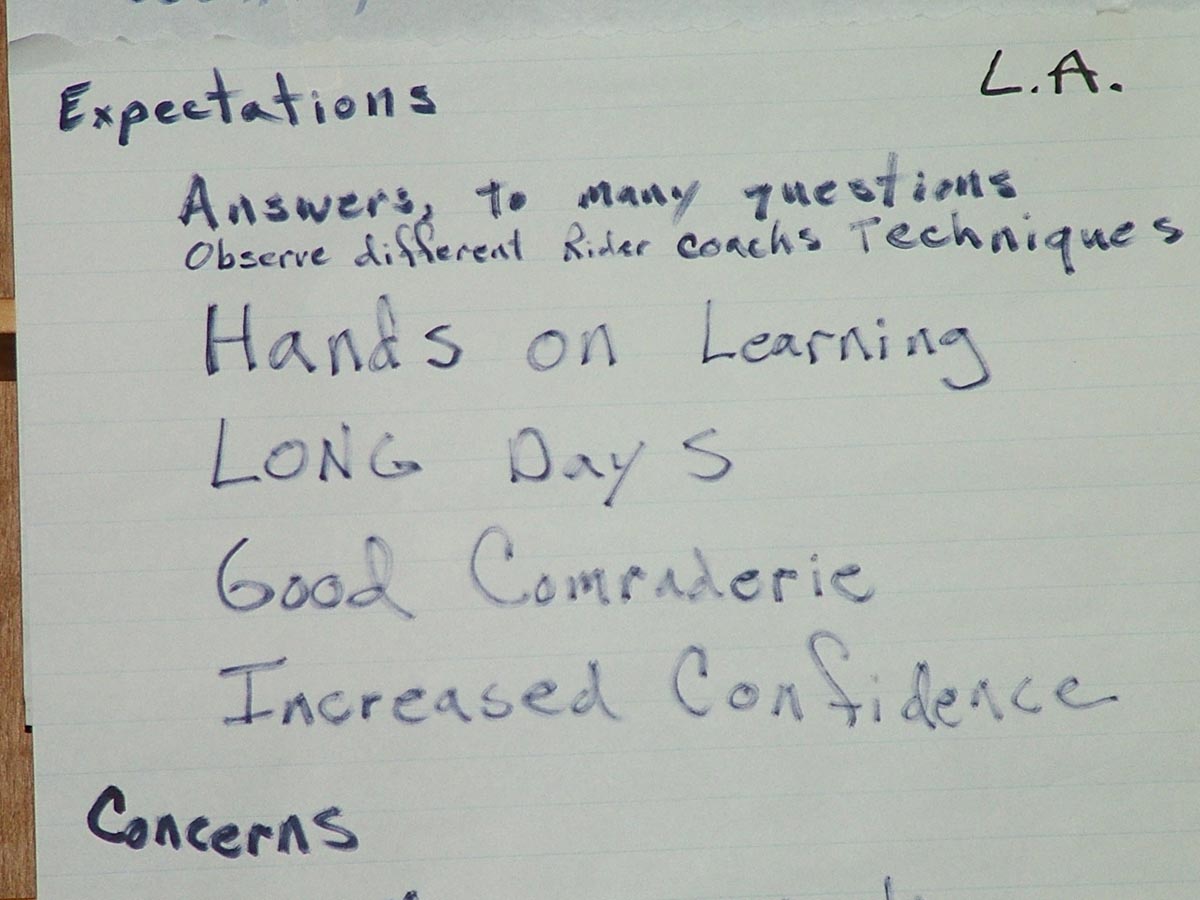 L.A.
Expectations
Answers, to many questions
Observe different Rider coachs Techniques
Hands on Learning
LONG Days
Good Comraderie
Increased Confidence
Concerns